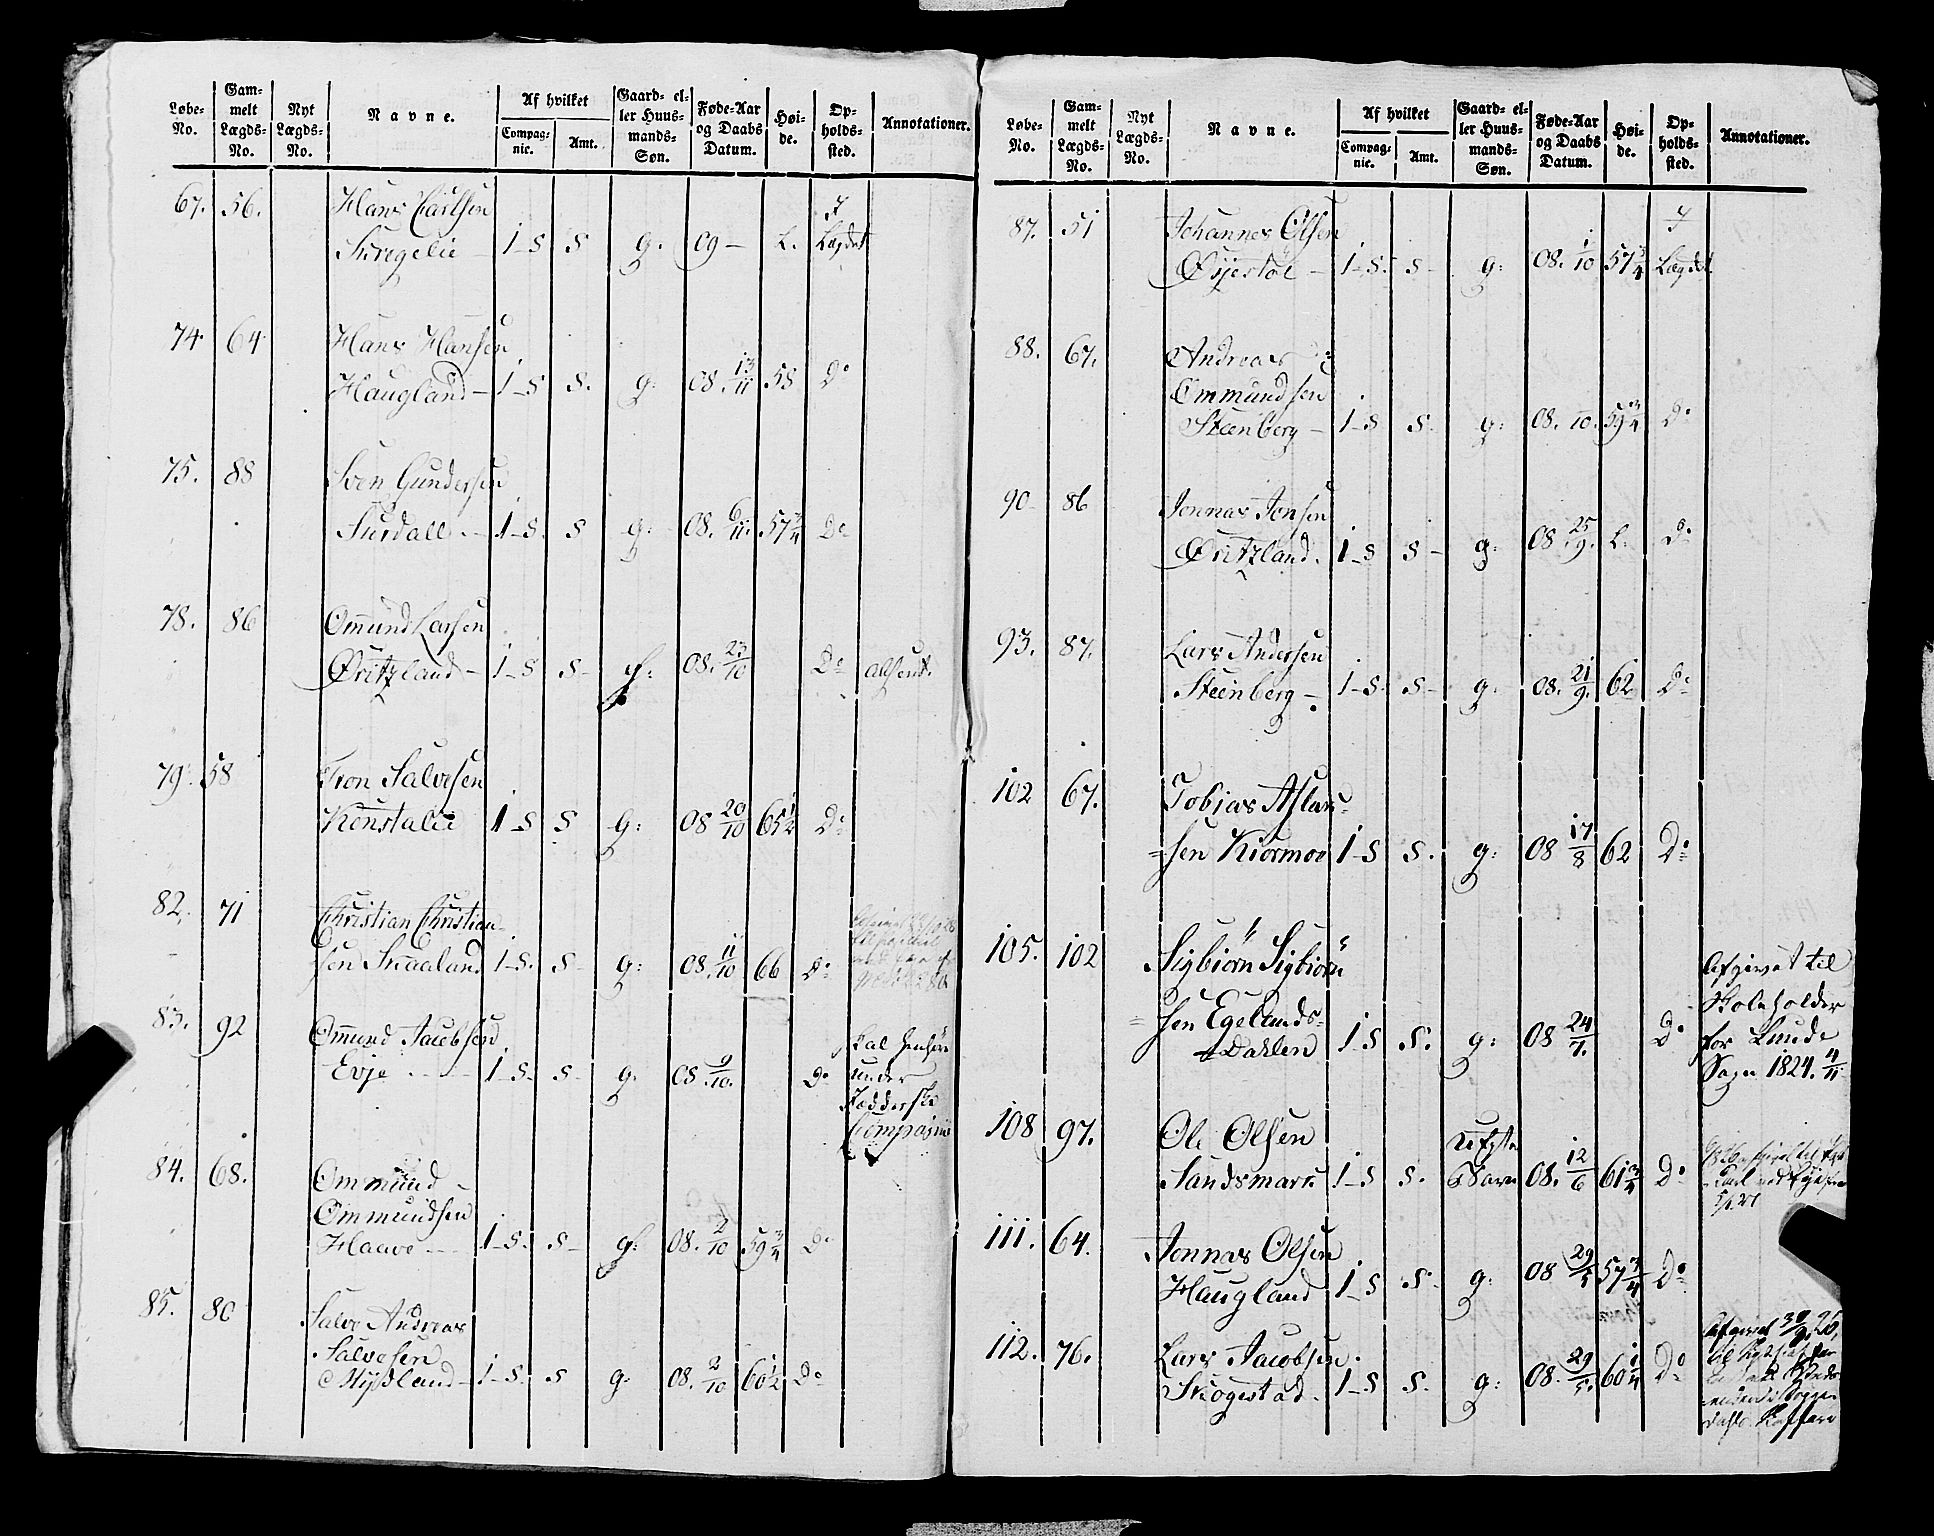 Løbe-No. Gammelt Lægds-No. Nyt Lægds-No. Navne. Af hvilket Compagnie. Amt. Gaard- eller Huusmands-Søn. Føde-Aar og Daabs Datum. Høide. Opholdssted. Annotationer.
67. 56. Hans Carlsen I
Skregelie – 1-S S g. 09 – L. Lægdet
74. 64. Hans Hansen
Haugland – 1-S S. g: 08. 13/11 58 D°
75. 88 Sven Gundersen
Surdall – 1-S. S g: 08. 6/11. 57 3/4 D°
78. 86 Ommund Larsen
Øvitzland – 1-S S- g: 08. 23/10 D° absent.
79. 58 Tron Salvesen
Konstalie 1-S S g: 08 20/10 65 1/2 D°
82. 71 Christian Christian-
sen Skaaland 1-S. S- g: 08. 11/10 66 D°
83. 92 Ommund Jacobsen skal henhøre
Evje 1-S. S- g. 08. 9/10. D° under
Jedderske
Compagnie
84. 68. Ommund –
Ommundsen
Haave 1-S. S- g: 08. 2/10 59 3/4 D°
85. 80 Salve Andreas
Salvesen
Myßland – 1-S. S g. 08. 2/10 60 1/2 D°
Løbe-No. Gammelt Lægds-No. Nyt Lægds-No. Navne. Af hvilket Compagnie. Amt. Gaard- eller Huusmands-Søn. Føde-Aar og Daabs Datum. Høide. Opholdssted. Annotationer.
87. 51 Johannes Olsen I
1-S. S- g: 08. 1/10 57 3/4 Lægdet
88. 67. Andreas
Ommundsen
Steenberg – 1-S S- g: 08. 10. 59 3/4 D°
90 86 Jonnas Jonsen
Øvitzland. 1-S S- g: 08 25/9. L. D°
93. 87. Lars Andersen
Steenberg – 1-S. S- g: 08. 21/9. 62 D°
102 67. Tobias Aslak-
sen Kiørmoe 1-S S. g: 08 17/8 62 D°
105. 102 Sigbiørn Sigbiørn- Afgivet til
sen Egelands- Skoleholder
Dahlen 1-S S. g: 08 24/7. D° for Lunde
Sogn 1824. 4/11
108 97. Ole Olsen Uægte
Sandsmark 1-S S. Barn 08. 12/6 61 3/4 D°
111. 64. Jonnas Olsen
Haugland 1-S S- g: 08 29/5 57 3/4 D°
112. 76. Lars Jacobsen Afgivet
Skogestad. 1-S S. g: 08. 29/5. 60 1/4 D°